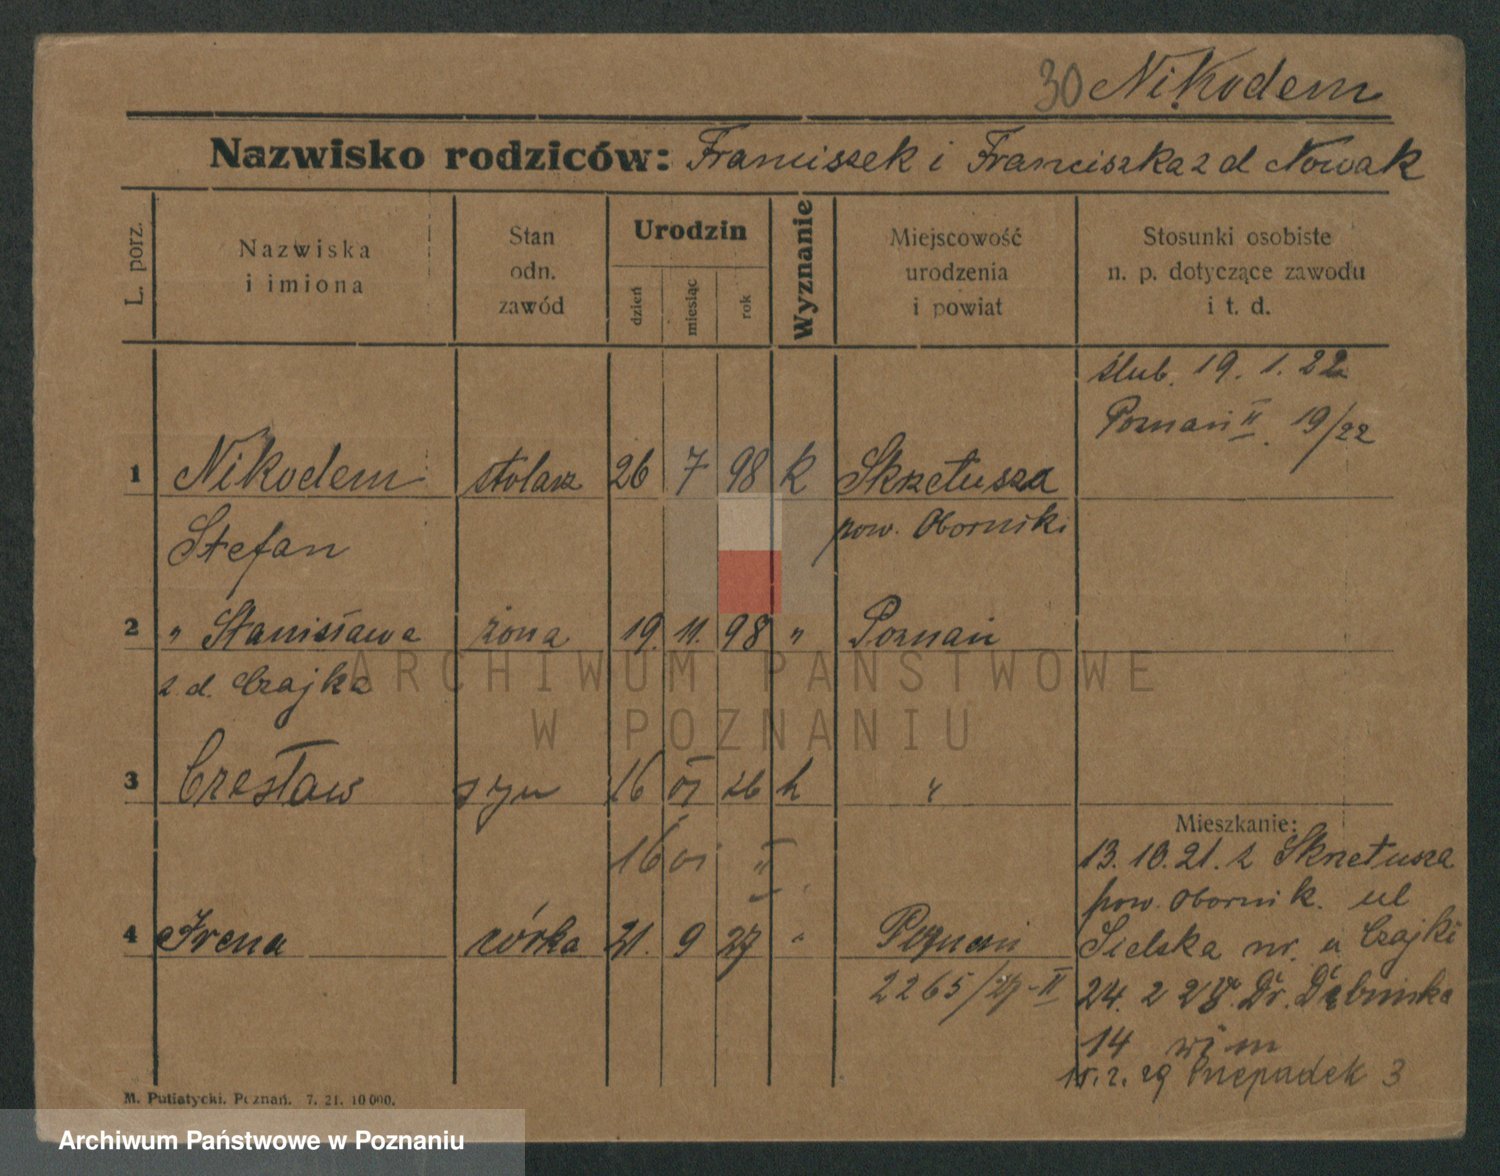 30 Nikodem
Nazwisko rodziców: Franciszek i Franciszka z d Nowak
L. porz.
Nazwiska
i imiona
Stan
odn.
zawód
Urodzin
dzień
miesiąc
rok
Wyznanie
Miejscowość
urodzenia
i powiat
Stosunki osobiste
n. p. dotyczące zawodu
i t. d.
ślub. 19. 1. 22
Poznań II. 19/22
1 Nikodem stolarz 26 7 98 k Skrzetusza
Stefan pow. Oborniki
2 " Stanisława żona 19. 11. 98 " Poznań
z d. Czajka
ARCHIWUM PAŃSTWOWE
W POZNANIU
3 Czesław syn 16 VI 26 k "
Mieszkanie:
16 VI II
13.10.21. z Skrzetusza
pow. Obornik. ul
4 Irena córka 21. 9 27 " Poznań
Sielska nr. u Czajki
2265/27-II
24. 2 Dr. Dębinska
14
15.2.29 Przepadek 3
M. Putiatycki, Poznań. 7. 21. 10 000.
Archiwum Państwowe w Poznaniu